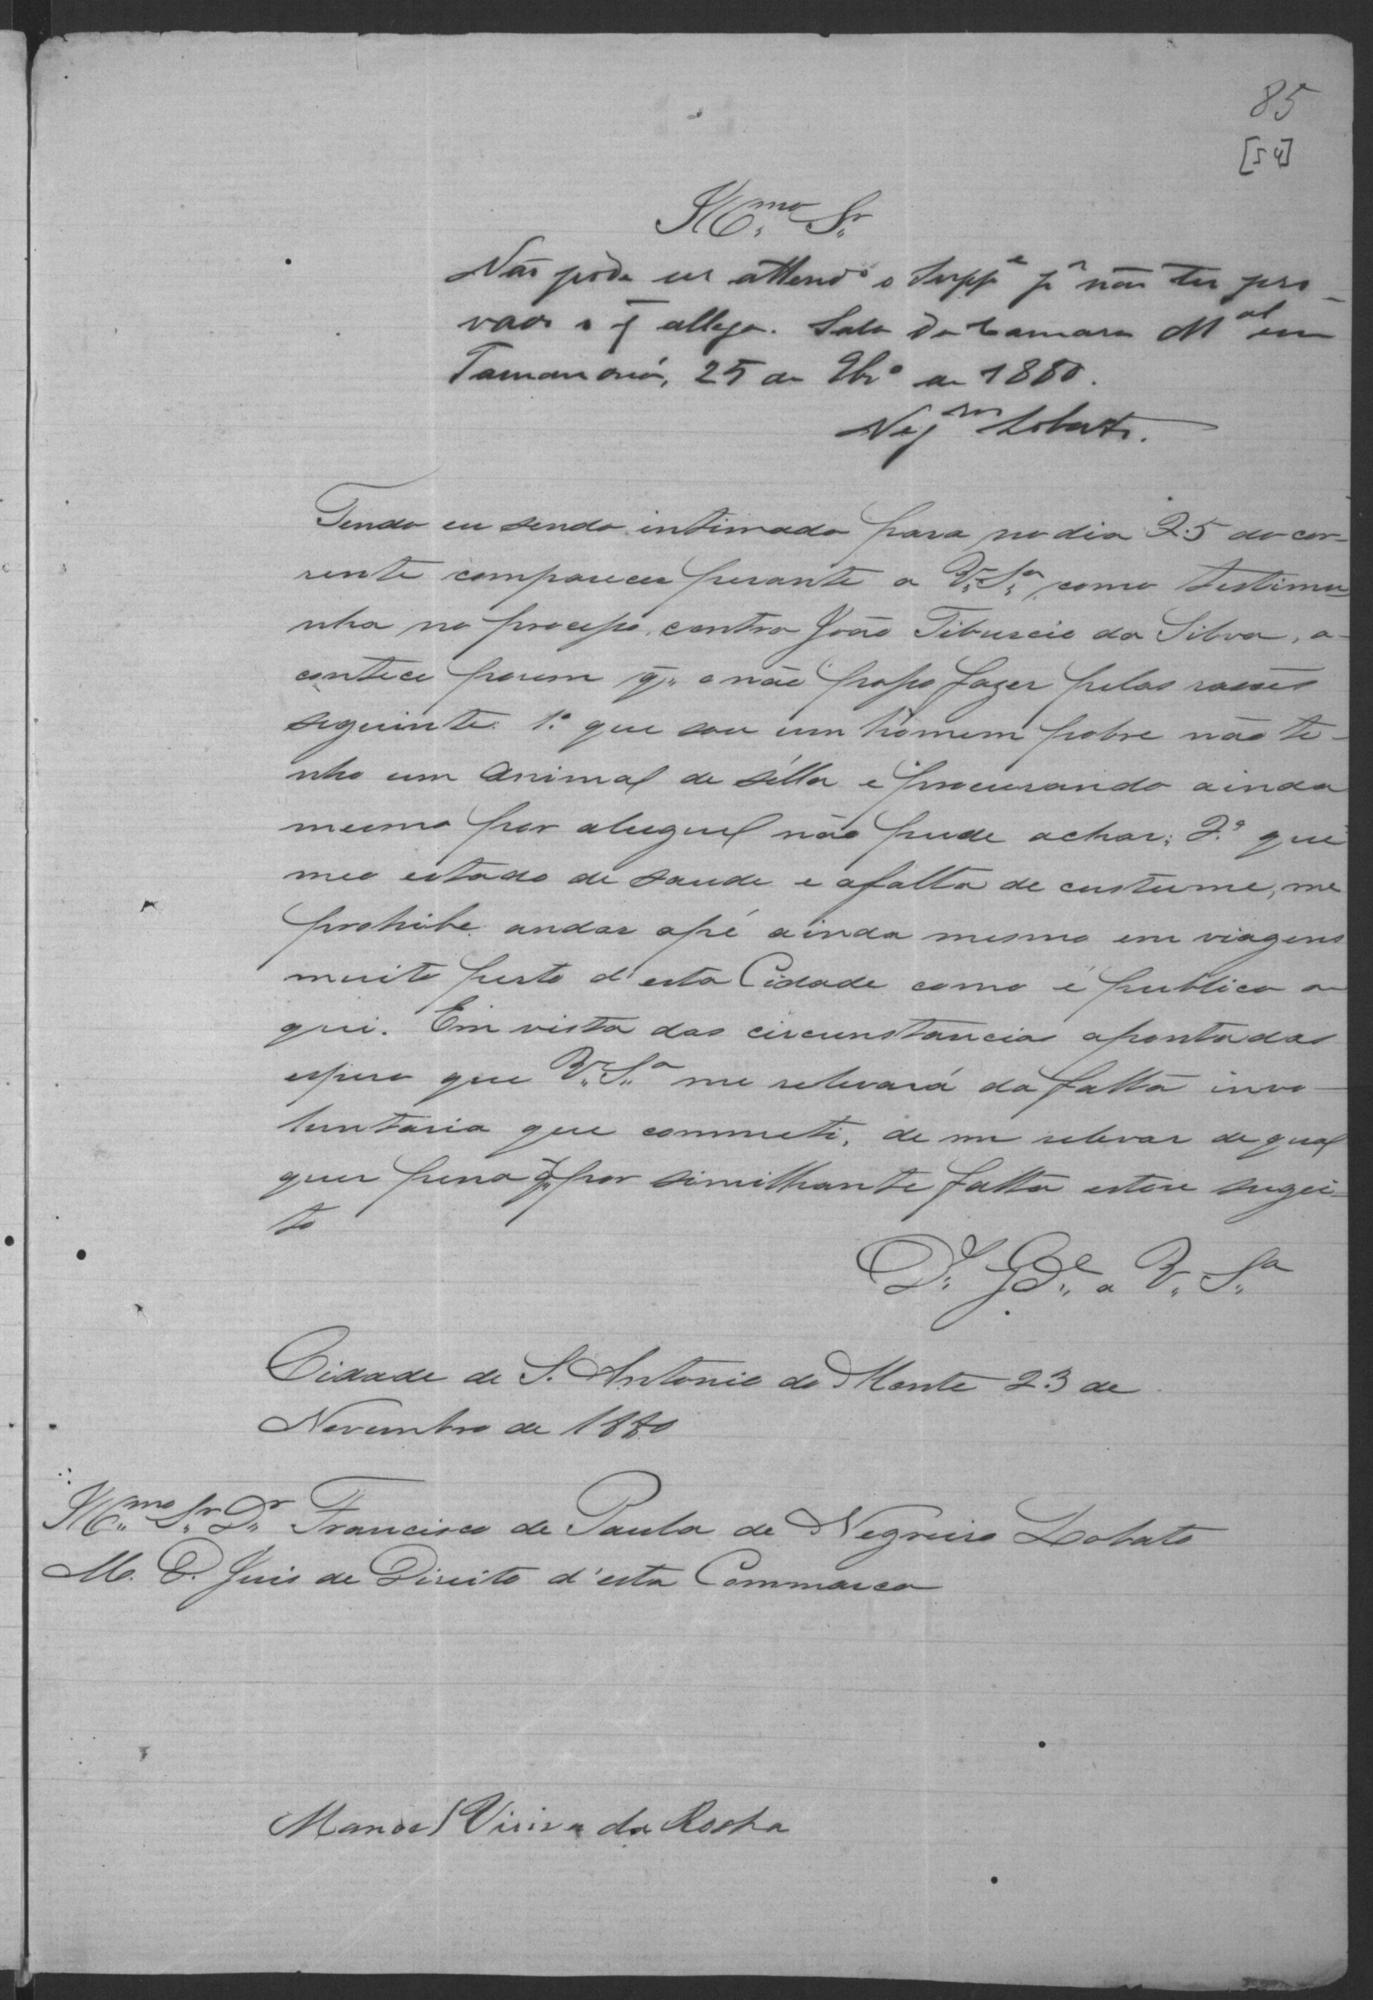 85
[54]
Illmo. Sr.
Não pode ser attendo o Suppe pr não ter pro-
vado o q̃ allega. Sala da Camara Mal em
Tamanduá, 25 de 9bro de 1880.
Negros Lobato.
Tendo eu sendo intimado para no dia 25 do cor-
rente comparecer perante a V. Sa. como testimu
nha no processo contra João Tiburcio da Silva, a-
contece porem q. o não posso fazer pelas rasões
seguinte: 1.º que sou um homem pobre não te-
nho um animal de sélla e procurando ainda
mesmo por aluguel não pude achar; 2.º que
meo estado de saude e a falta de custume, me
prohibe andar apé ainda mesmo em viagens
muito perto d'esta Cidade como é publico a
qui. Em vista das circunstancias apontadas
espero que V. Sa. me relevará da falta invo-
luntaria que commeti, de me relevar de qual
quer pena q. por similhante falta estou sugei-
to
Ds. Gde. a V. Sa.
Cidade de S. Antonio do Monte 23 de
Novembro de 1880
Illmo. Sr. Dr. Francisco de Paula de Negreiro Lobato
M. D. Juis de Direito d'esta Commarca
Manoel Vieira da Rocha